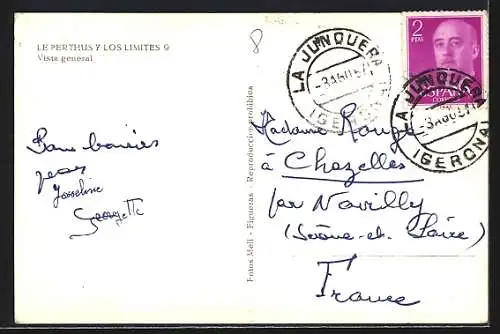 LE PERTHUS Y LOS LIMITES 9
Vista general
8
LA JUNQUERA
-3 AGO 57
(GERONA)
2
PTAS
LA JUNQUERA
-3 AGO 57
(GERONA)
Bons baisers
Josseline
Georgette
Fotos Meli - Figueras - Reproducción prohibida
Madame Rouge
à Chazelles
par Navilly
(Saône-et-Loire)
France